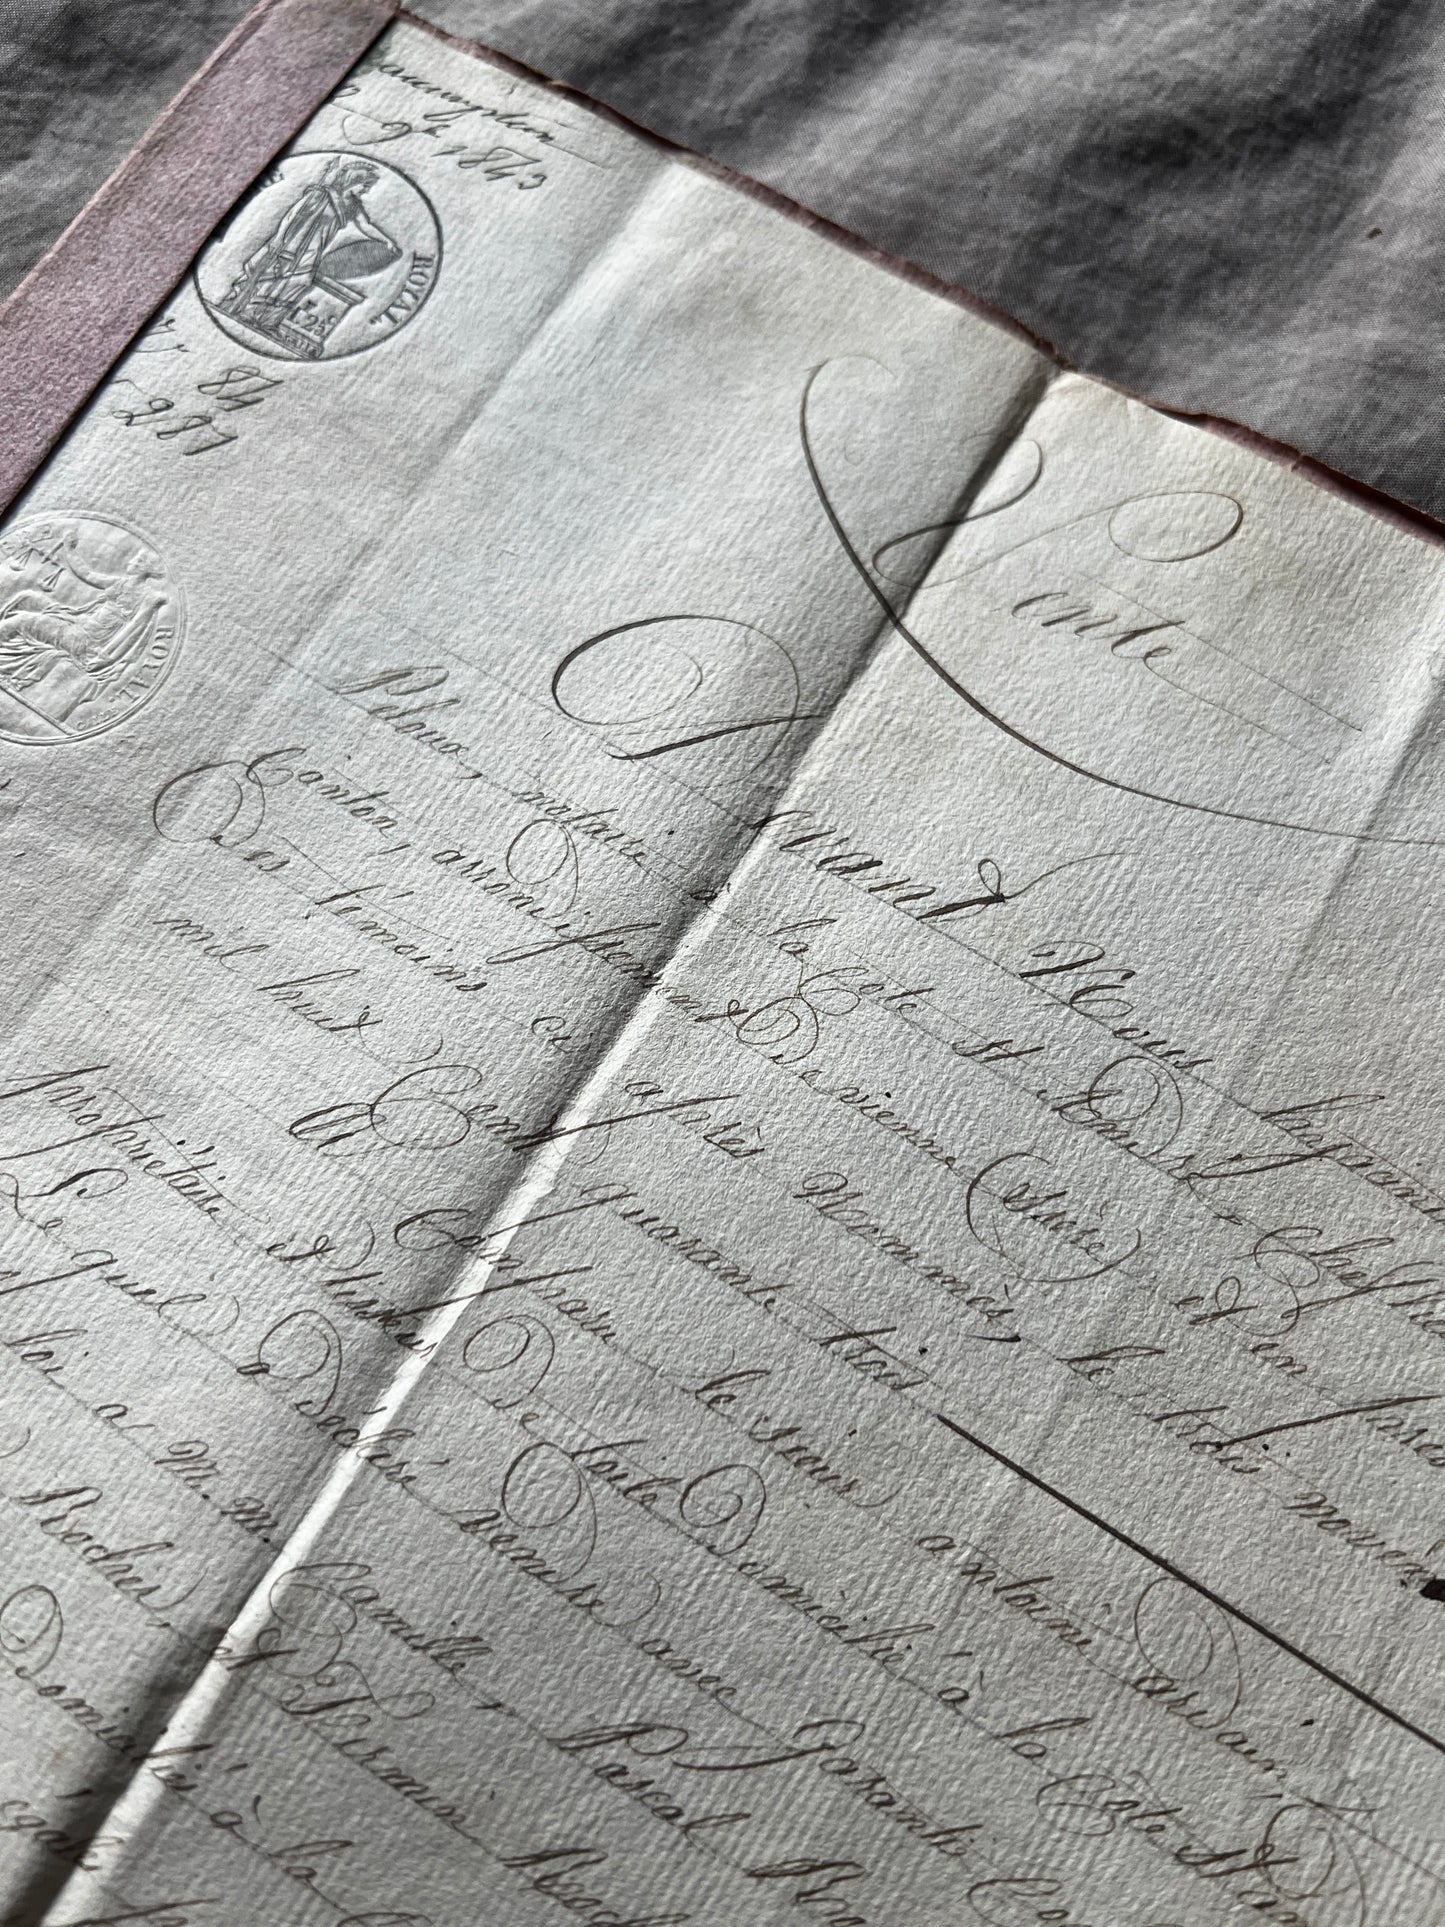 9bre 1843
ROYAL
1F 25c
84
287
ROYAL
Vente
Devant Nous
Peloux, notaire à la Cote St André, Chef
Canton, arrondissement De vienne (isère) et en
Des témoins ci après Nommés, le trois novem
mil huit Cent quarante trois
a Comparu le sieur antoine
propriétaire et De toile Domicilié à la Côte St
Lequel a Déclaré vendre avec Garantie
loi a M. M. Camille, Pascal
Rocher, et Firmin
Domiciliés à la